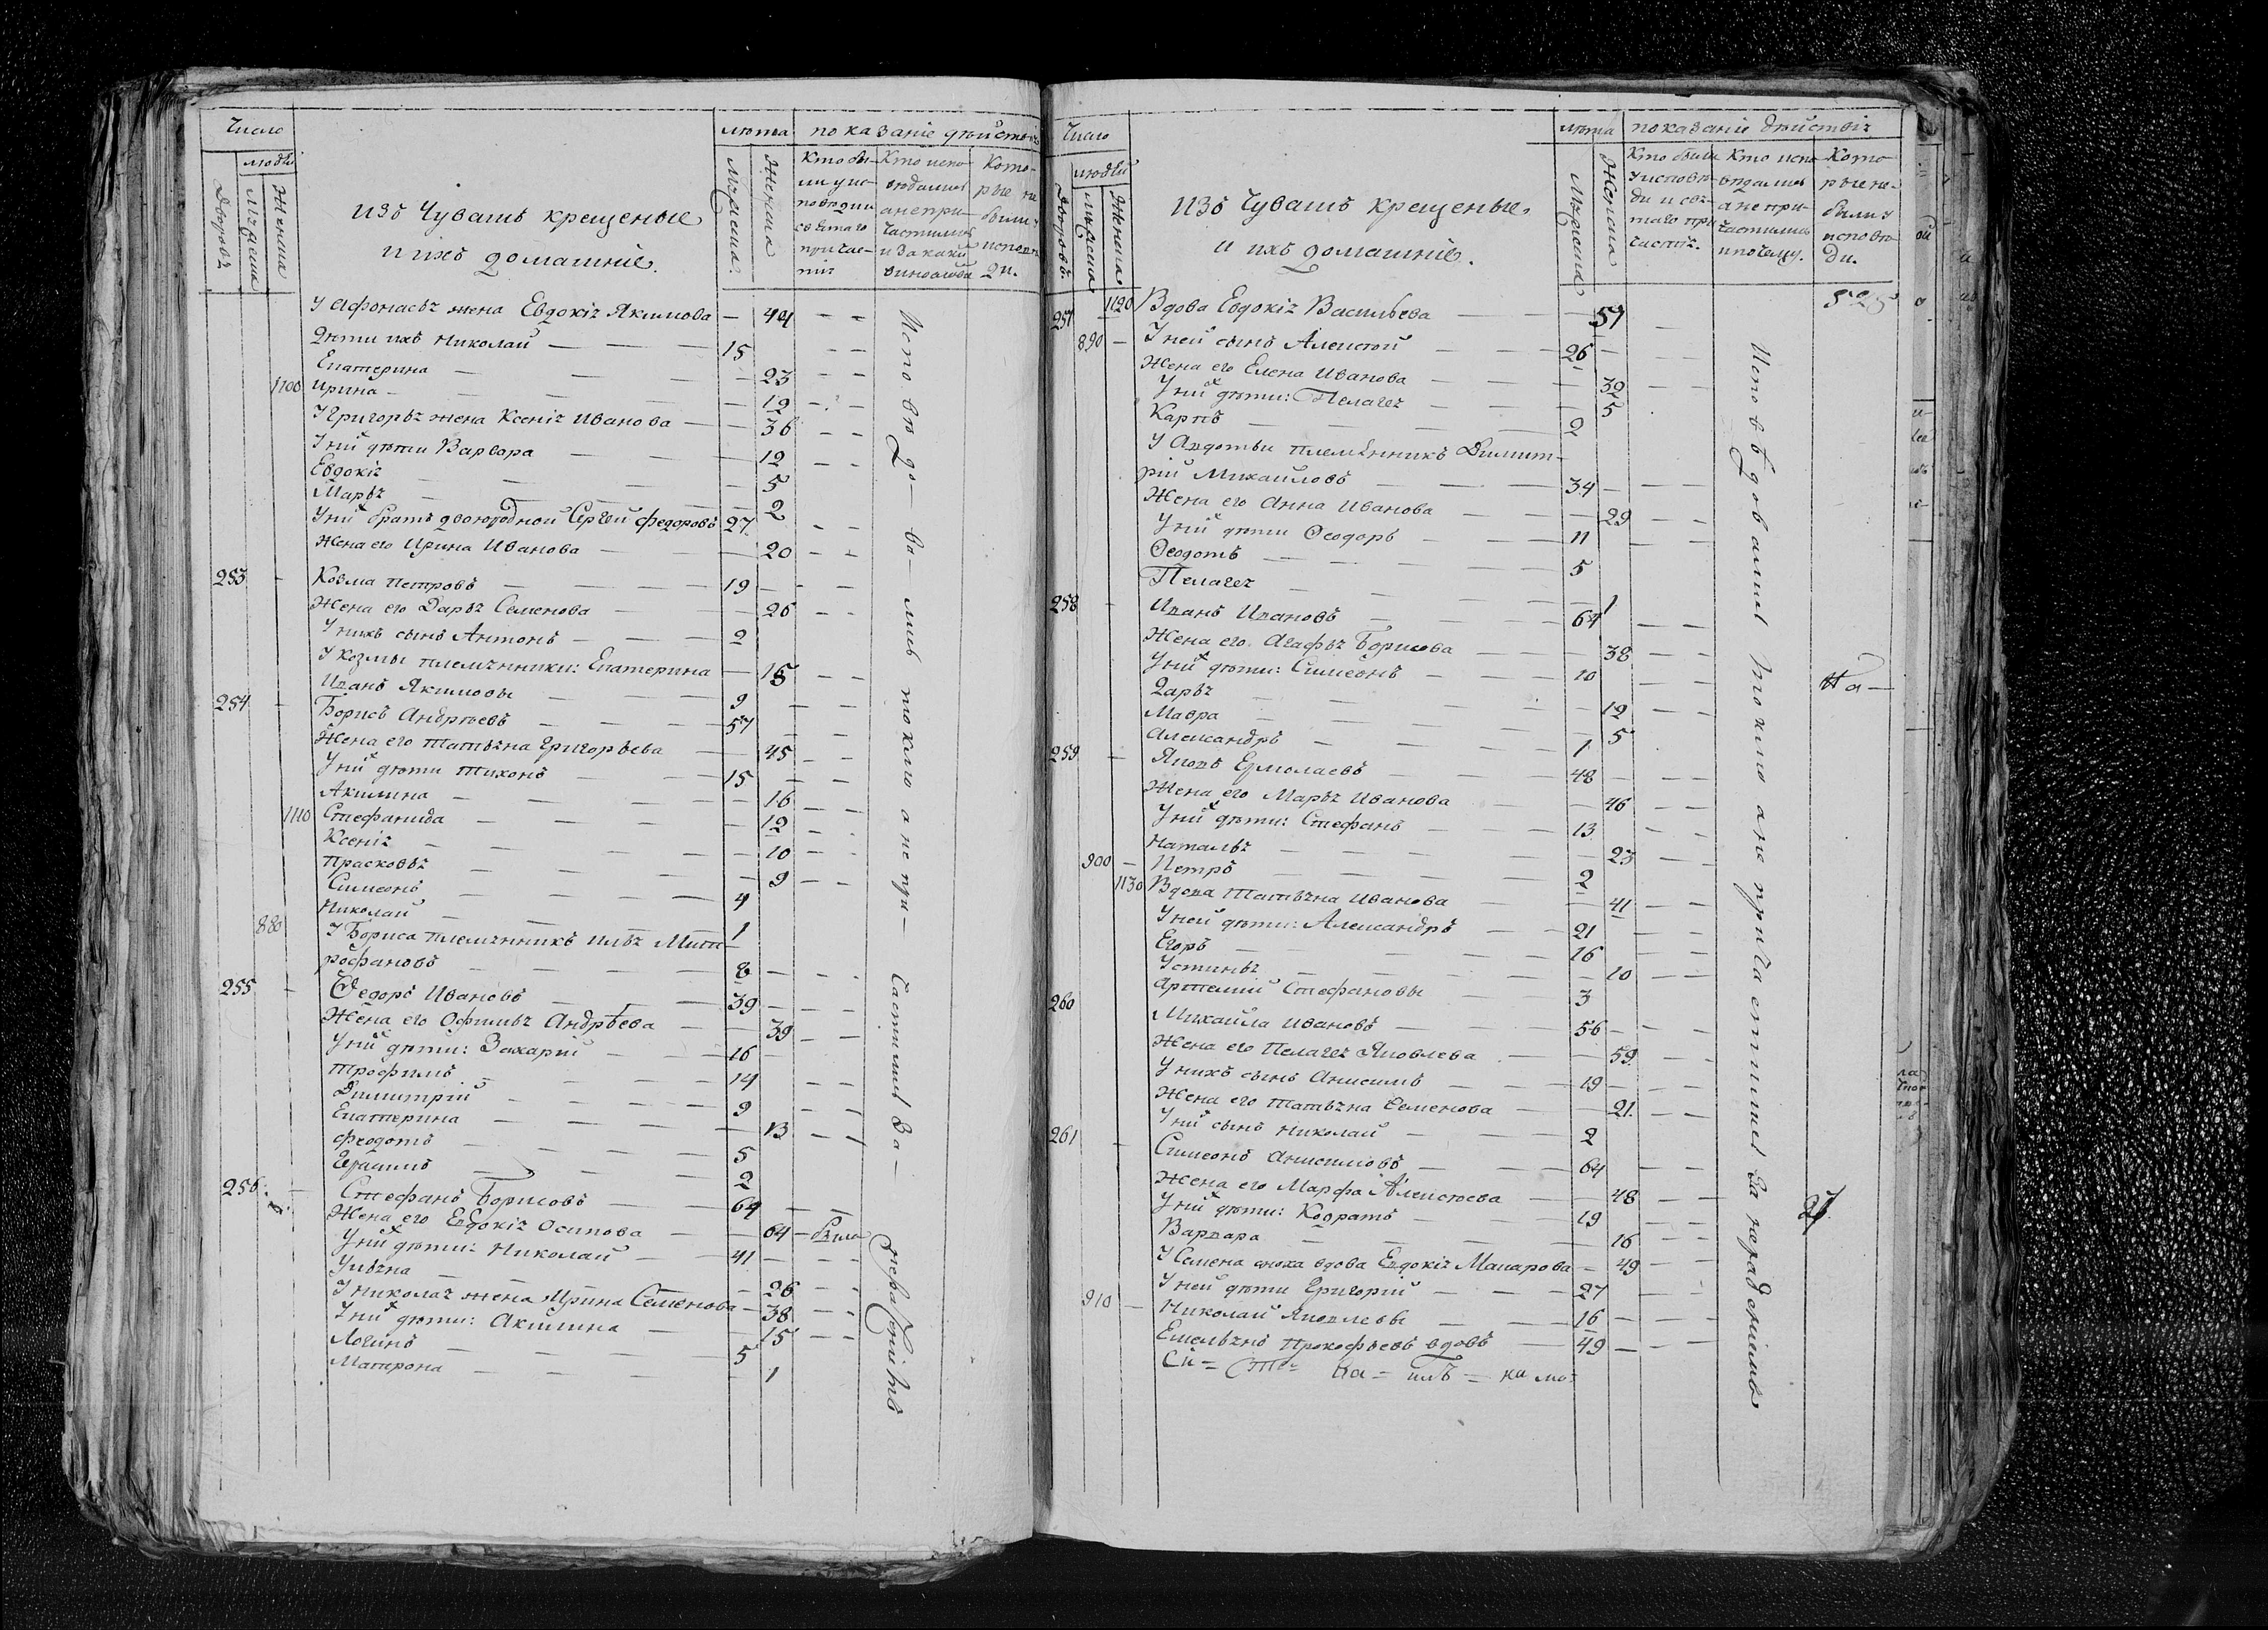 число
людей
дворовъ
мужеска
женска
изъ чувашъ крещеные
и ихъ домашніе.
лѣта
мужеска
женска
показаніе дѣйствія
Кто бы-
ли у ис-
повѣди и
святаго
причас-
тія
Кто испо-
вѣдался
а не при-
частился
и за какой
виною
Кото-
рые не
были у
исповѣ-
ди.
У Афонасья жена Евдокія Якимова — 44 — —
Дѣти ихъ Николай — — — 15 — —
Екатерина — — — 23 — —
1100 Ирина — — — 12 — —
У Григорья жена Ксенія Иванова — — 36 — —
У них дѣти Варвара — — 12 — —
Евдокія — — — 5
Марья — — — 2
У них братъ двоюродной Сергей Федоровъ 27 — —
Жена его Ирина Иванова — — 20 — —
253 — Козма Петровъ — — — 19 — — —
Жена его Дарья Семенова — — 26 — —
У нихъ сынъ Антонъ — — — 2
У Козмы племянники: Екатерина — 15 — —
Иванъ Якимовы — — — 9
254 — Борисъ Андрѣевъ — — — 57 — —
Жена его Татьяна Григорьева — — 45 — —
У них дѣти Тихонъ — — — 15 — —
Акилина — — — 16 — —
1110 Стефанида — — — 12 — —
Ксенія — — — 10 — —
Прасковья — — — 9 — —
Симеонъ — — — 4
Николай — — — 1
880 У Бориса племянникъ Илья Мит-
рофановъ — — — 8 — — —
255 — Ѳедоръ Ивановъ — — — 39 — — —
Жена его Офимья Андрѣева — — 39 — —
У них дѣти: Захарій — — — 16 — — —
Трофимъ — — — 14 — — —
Димитрій — — — 9 — — —
Екатерина — — — 13 — —
Феодотъ — — — 5
Герасимъ — — 2
256. — Стефанъ Борисовъ — — — 64 — —
Жена его Евдокія Осипова — — 64 — была
У них дѣти: Николай — — 41 — — —
Ульяна — — — 26 — —
У Николая жена Ирина Семенова — 38 — —
У них дѣти: Акилина — — 15 — —
Логинъ — — — 5
Матрона — — — 1
Исповѣдо- ва- лись токмо а не при- частились за- нераченіемъ
число
людей
дворовъ
мужеска
женска
изъ чувашъ крещеные
и ихъ домашніе.
лѣта
мужеска
женска
показаніе дѣйствія
Кто были
у исповѣ-
ди и свя-
таго при-
частія.
Кто испо-
вѣдался
а не при-
частился
и почему.
Кото-
рые не
были у
исповѣ-
ди.
525
257 1120 Вдова Евдокія Васильева — — 57 —
890 — У ней сынъ Алексей — — 26 —
Жена его Елена Иванова — — — 32 — —
У них дѣти: Пелагея — — 5
Карпъ — — — 2
У Авдотьи племянникъ Димит-
рій Михайловъ — — — 34 — —
Жена его Анна Иванова — — — 29 — —
У них дѣти Ѳеодоръ — — — 11 — —
Ѳеодотъ — — — 5
Пелагея — — — 1
258 — Иванъ Ивановъ — — — 64 — —
Жена его Агафья Борисова — — 38 — —
У них дѣти: Симеонъ — — — 10 — —
Дарья — — — 12 — —
Мавра — — — 5
Александръ — — — 1
259 — Яковъ Ермолаевъ — — — 48 — — —
Жена его Марья Иванова — — 46 — —
У них дѣти: Стефанъ — — 13 — — —
Наталья — — — 23 — —
900 — Петръ — — — 2
1130 Вдова Татьяна Иванова — — 41 — —
У ней дѣти: Александръ — — 21 — —
Егоръ — — — 16 — —
Устинья — — — 10 — —
Артемій Стефановы — — 3
260 Михайла Ивановъ — — 56 — — —
Жена его Пелагея Яковлева — — 59 — —
У нихъ сынъ Анисимъ — — 19 — — —
Жена его Татьяна Семенова — — 21. — —
У них сынъ Николай — — 2
261 — Симеонъ Анисимовъ — — 64 — —
Жена его Марфа Алексеева — — 48 — —
У них дѣти: Кодратъ — — 19 — —
Варвара — — — 16 — —
У Семена сноха вдова Евдокія Макарова — 49 — —
У ней дѣти Григорій — — — 27 — —
910 — Николай Яковлевы — — 16 — — —
Емельянъ Прокофьевъ вдовъ — 49 — —
Исповѣдовались токмо а не причастились за нерадѣніемъ
На —